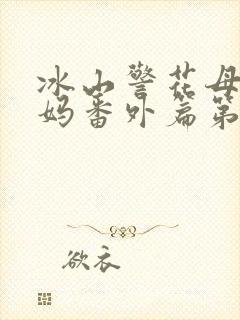 冰山警花母
妈番外篇第
欲衣